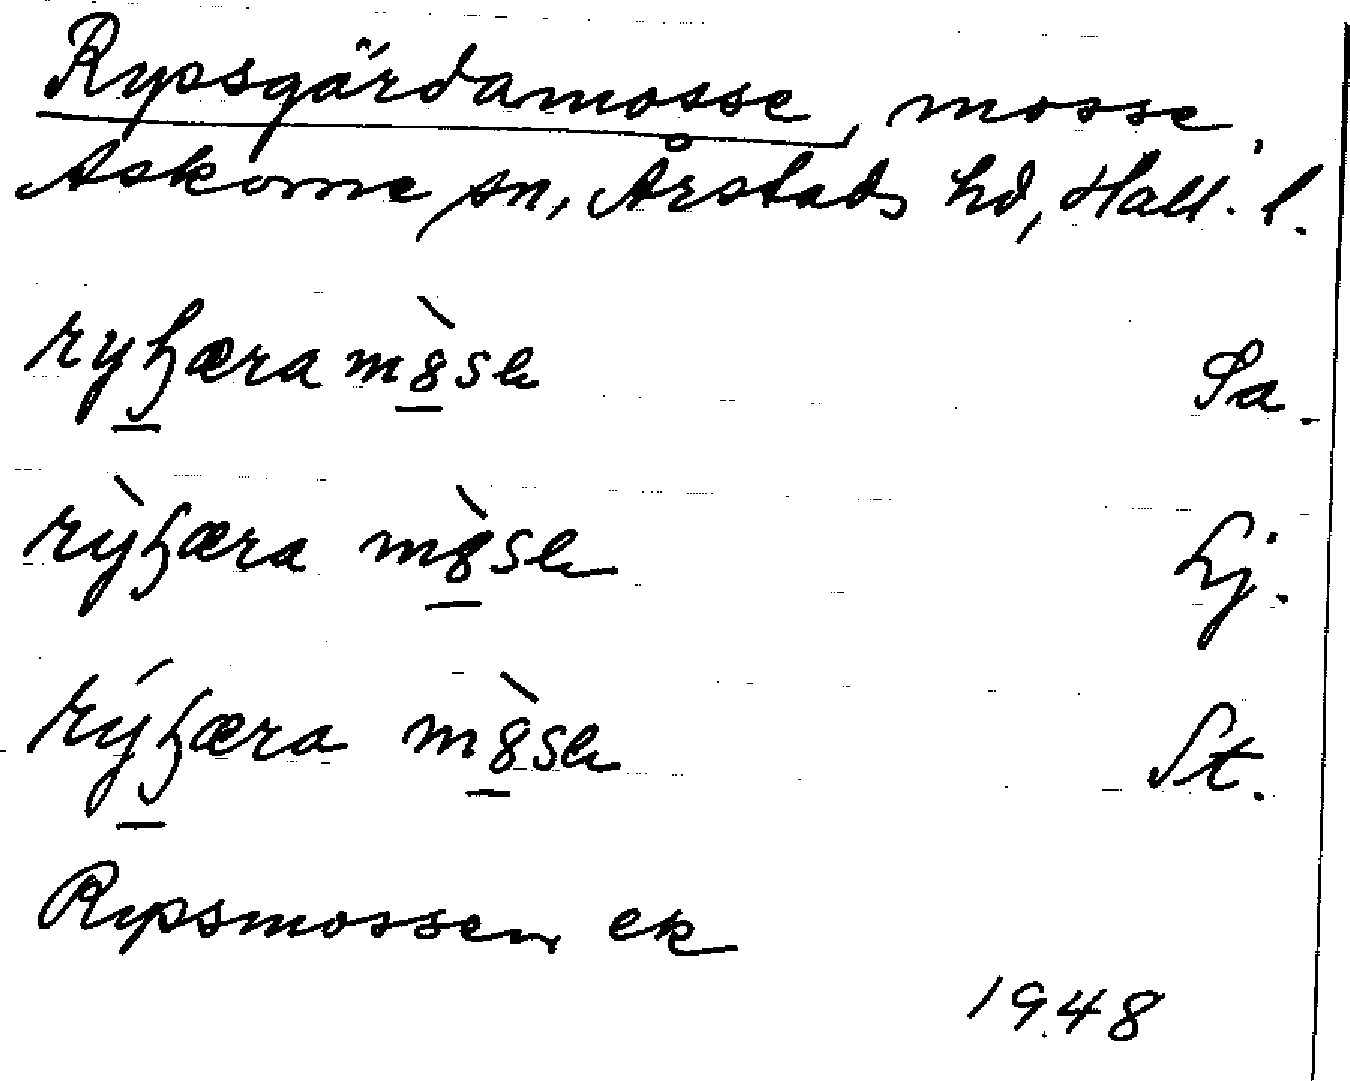 Rypsgärdamosse, mosse,
Askome sn, Årstads hd, Hall. l.
ryɧæra m8̀sɐ Sa.
rỳɧæra m8̀sɐ Lj.
rýɧæra m8̀sɐ St.
Rypsmossen ek
1948